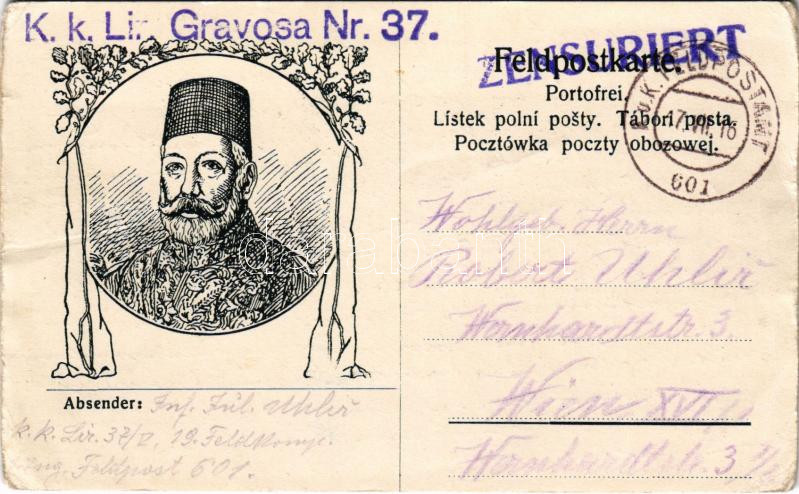 K. k. Lir. Gravosa Nr. 37.
ZENSURIERT
Feldpostkarte.
Portofrei.
Lístek polní pošty. Tábori posta.
Pocztówka poczty obozowej.
K.u.K. FELDPOSTAMT
17.VII.16
601
Wohlgeb. Herrn
Robert Uhliř
Wernhardtstr. 3.
Wien XVI/
Wernhardtstr. 3
Absender: Inf. Jul. Uhliř
k. k. Lir. 37/I, 19. Feldkomp.
Feldpost 601.
darabanth